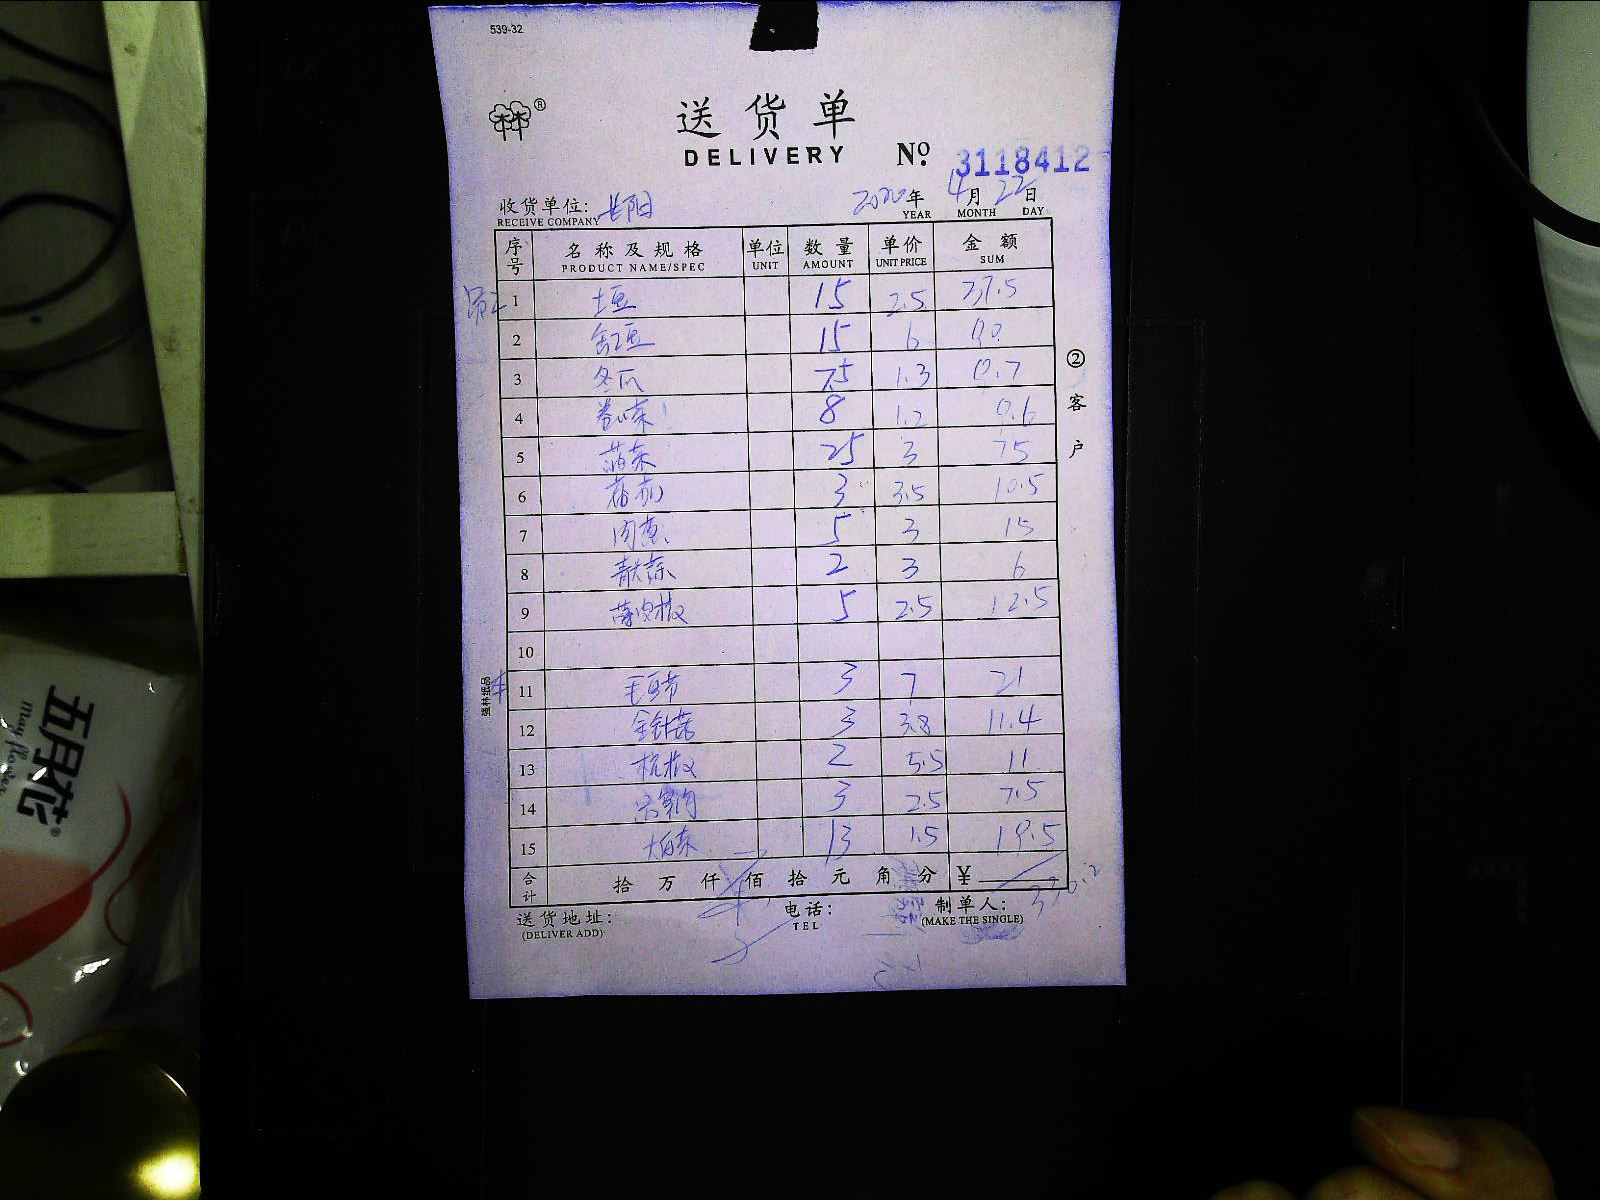 539-32
®
送货单
DELIVERY No. 3118412
收货单位: 2020年 4月 22日
RECEIVE COMPANY YEAR MONTH DAY
序号 名称及规格 单位 数量 单价 金额
PRODUCT NAME/SPEC UNIT AMOUNT UNIT PRICE SUM
1 土豆 15 2.5 37.5
2 15 6 90
3 冬瓜 7.5 1.3
4 8 1.2
5 菠菜 25 3 75
6 番茄 3 3.5 10.5
7 肉葱 5 3 15
8 青大蒜 2 3 6
9 薄皮椒 5 2.5 12.5
10
11 毛豆节 3 7 21
12 金针菇 3 3.8 11.4
13 杭椒 2 5.5 11
14 3 2.5 7.5
15 大白菜 13 1.5 19.5
合计 拾 万 仟 佰 拾 元 角 分 ¥
送货地址: 电话: 制单人:
(DELIVER ADD) TEL (MAKE THE SINGLE)
②客户
强林纸品
五月花®
mayflower